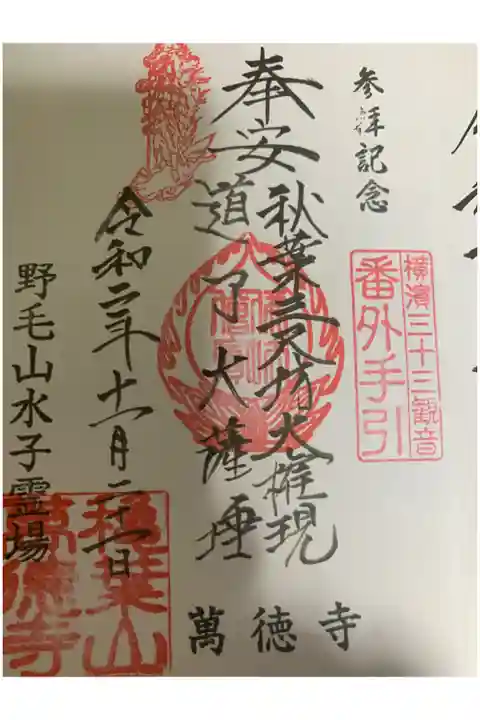 参拝記念
横濱三十三観音
番外手引
奉安
秋葉三尺坊大権現
道了大薩埵
令和二年十一月二十一日
野毛山水子霊場
秋葉山
萬徳寺
萬徳寺